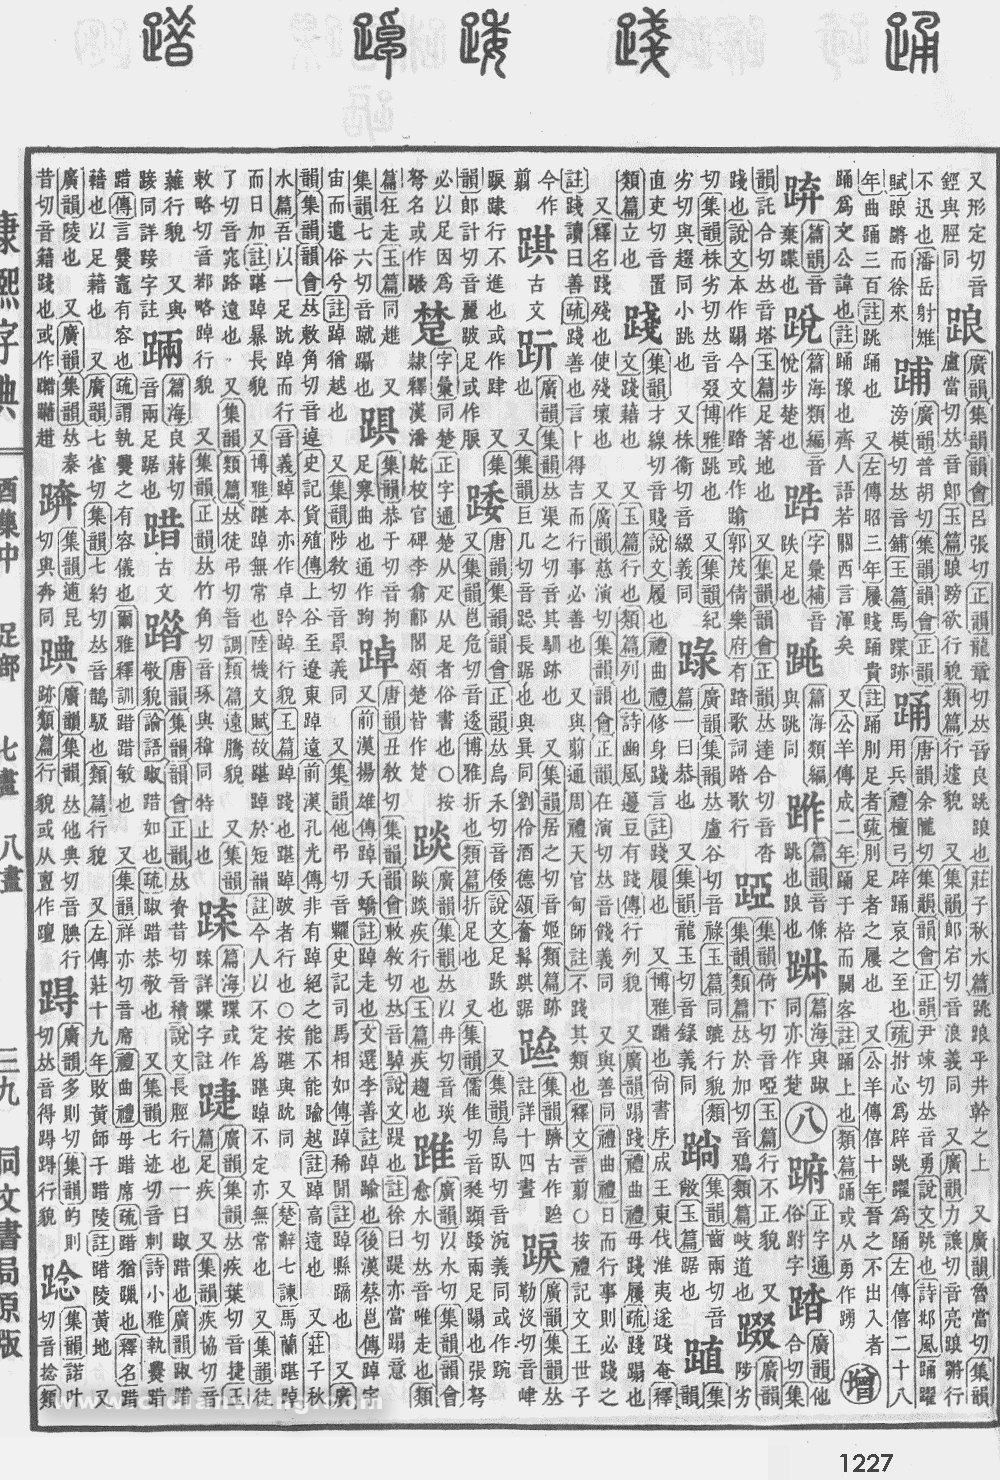 踊
踐
踒
踔
踖
又形定切音
鋞與脛同
踉
廣韻集韻韻會呂張切正韻龍章切𠀤音良跳踉也莊子秋水篇跳踉乎井幹之上 又廣韻魯當切集韻
盧當切𠀤音郎玉篇踉䠙欲行貌類篇行遽貌 又集韻郎宕切音浪義同 又廣韻力讓切音亮踉蹡行
不迅也潘岳射雉
賦踉蹡而徐來
廣韻普胡切集韻韻會正韻
滂模切𠀤音鋪玉篇馬蹀跡
踊
唐韻余隴切集韻韻會正韻尹竦切𠀤音勇說文跳也詩邶風踊躍
用兵禮檀弓辟踊哀之至也疏拊心爲辟跳躍爲踊左傳僖二十八
年曲踊三百註跳踊也 又左傳昭三年屨賤踊貴註踊刖足者疏刖足者之屨也 又公羊傳僖十年晉之不出入者
踊爲文公諱也註踊豫也齊人語若關西言渾矣 又公羊傳成二年踊于棓而闚客註踊上也類篇踊或从勇作踴
增
篇韻音
棄蹀也
篇海類編音
悅步楚也
字彙補音
趹足也
篇海類編
與跳同
篇韻音條
跳也踉也
篇海與踧
同亦作
八
正字通
俗跗字
踏
廣韻他
合切集
韻託合切𠀤音塔玉篇足著地也 又集韻韻會正韻𠀤達合切音沓
踐也說文本作蹋今文作踏或作蹹郭茂倩樂府有踏歌詞踏歌行
踣
集韻倚下切音啞玉篇行不正貌 又
集韻類篇𠀤於加切音鴉類篇岐道也
踂
陟劣
廣韻
切集韻株劣切𠀤音叕博雅跳也 又集韻紀
劣切與趨同小跳也 又株衞切音綴義同
踛
廣韻集韻𠀤盧谷切音祿玉篇同𨇽行貌類
篇一曰恭也 又集韻龍玉切音錄義同
集韻齒兩切音
敞玉篇踞也
集
韻
直吏切音置
類篇立也
踐
集韻才線切音賤說文履也禮曲禮修身踐言註踐履也 又博雅蹋也尙書序成王東伐淮夷遂踐奄釋
文踐藉也 又玉篇行也類篇列也詩豳風籩豆有踐傳行列貌 又廣韻蹋踐禮曲禮毋踐屨疏踐蹋也
又釋名踐殘也使殘壞也 又廣韻慈演切集韻韻會正韻在演切𠀤音餞義同 又與善同禮曲禮日而行事則必踐之
註踐讀曰善疏踐善也言卜得吉而行事必善也 又與翦通周禮天官甸師註不踐其類也釋文音翦○按禮記文王世子
今作
翦
踑
古文
廣韻集韻𠀤渠之切音其馴跡也 又集韻居之切音姬類篇跡
也 又集韻巨几切音跽長踞也與㠱同 劉伶酒德頌奮髯踑踞
集韻躋古作
註詳十四畫
廣韻集韻𠀤
勒沒切音
踩踛行不進也或作肆 又集
韻郎計切音麗跛足或作
踒
唐韻集韻韻會正韻𠀤烏禾切音倭說文足跌也 又集韻烏臥切音涴義同或作踠
又集韻邕危切音逶博雅折也類篇折足也 又集韻儒隹切音甤踬踒兩足蹋也張弩
必以足因爲
弩名或作䠊
楚
字彙同楚正字通楚从疋从足者俗書也○按
隸釋漢潘乾校官碑李翕郙閣頌楚皆作楚
踗
廣韻集韻𠀤以冉切音琰
踗踗疾行也玉篇疾趨也
踓
廣韻以水切集韻韻會
愈水切𠀤音唯走也類
篇狂走玉篇同進 又
集韻七六切音蹴躡也
踘
集韻恭于切音拘
足寒曲也通作跔
踔
唐韻丑敎切集韻韻會敕敎切𠀤音䠦說文踶也註徐曰踶亦當蹋意
又前漢揚雄傳踔夭蟜註踔走也文選李善註踔踰也後漢蔡邕傳踔宇
宙而遺俗兮註踔猶越也 又集韻陟敎切音罩義同 又集韻他弔切音糶史記司馬相如傳踔稀閒註踔縣蹢也 又廣
韻集韻韻會𠀤敕角切音逴史記貨殖傳上谷至遼東踔遠前漢孔光傳非有踔絕之能不能踰越註踔高遠也 又莊子秋
水篇吾以一足趻踔而行音義踔本亦作卓踸踔行貌玉篇踔踐也踸踔跛者行也○按踸與趻同 又楚辭七諫馬蘭踸踔
而日加註踸踔暴長貌 又博雅踸踔無常也陸機文賦故踸踔於短韻註今人以不定爲踸踔不定亦無常也 又集韻徒
了切音窕路遠也 又集韻類篇𠀤徒弔切音調類篇遠騰貌 又集韻
敕略切音婥略踔行貌 又集韻正韻𠀤竹角切音琢與穛同特止也
篇海蹀或作
詳蹀字註
踕
廣韻集韻𠀤疾葉切音捷玉
篇足疾 又集韻疾協切音
䕹行貌 又與
𨂺同詳𨂺字註
䠄
篇海良蔣切
音兩足踞也
踖
古文
唐韻集韻韻會正韻𠀤資昔切音積說文長脛行也一曰踧踖也廣韻踧踖
敬貌論語踧踖如也疏踧踖恭敬也 又集韻七迹切音刺詩小雅執爨踖
踖傳言爨竈有容也疏謂執爨之有容儀也爾雅釋訓踖踖敏也 又集韻祥亦切音席禮曲禮毋踖席疏踖猶躐也釋名踖
藉也以足藉也 又廣韻七雀切集韻七約切𠀤音鵲馺也類篇行貌 又左傳莊十九年敗黃師于踖陵註踖陵黃地 又
廣韻陵也 又廣韻集韻𠀤秦
昔切音籍踐也或作
集韻逋昆
切與奔同
䠄
廣韻集韻𠀤他典切音腆行
跡類篇行貌或从亶作䡀
廣韻多則切集韻的則
切𠀤音得蹋蹋行貌
踗
集韻諾叶
切音捻類
康熙字典
酉集中 足部 七畫 八畫
三九 同文書局原版
1227